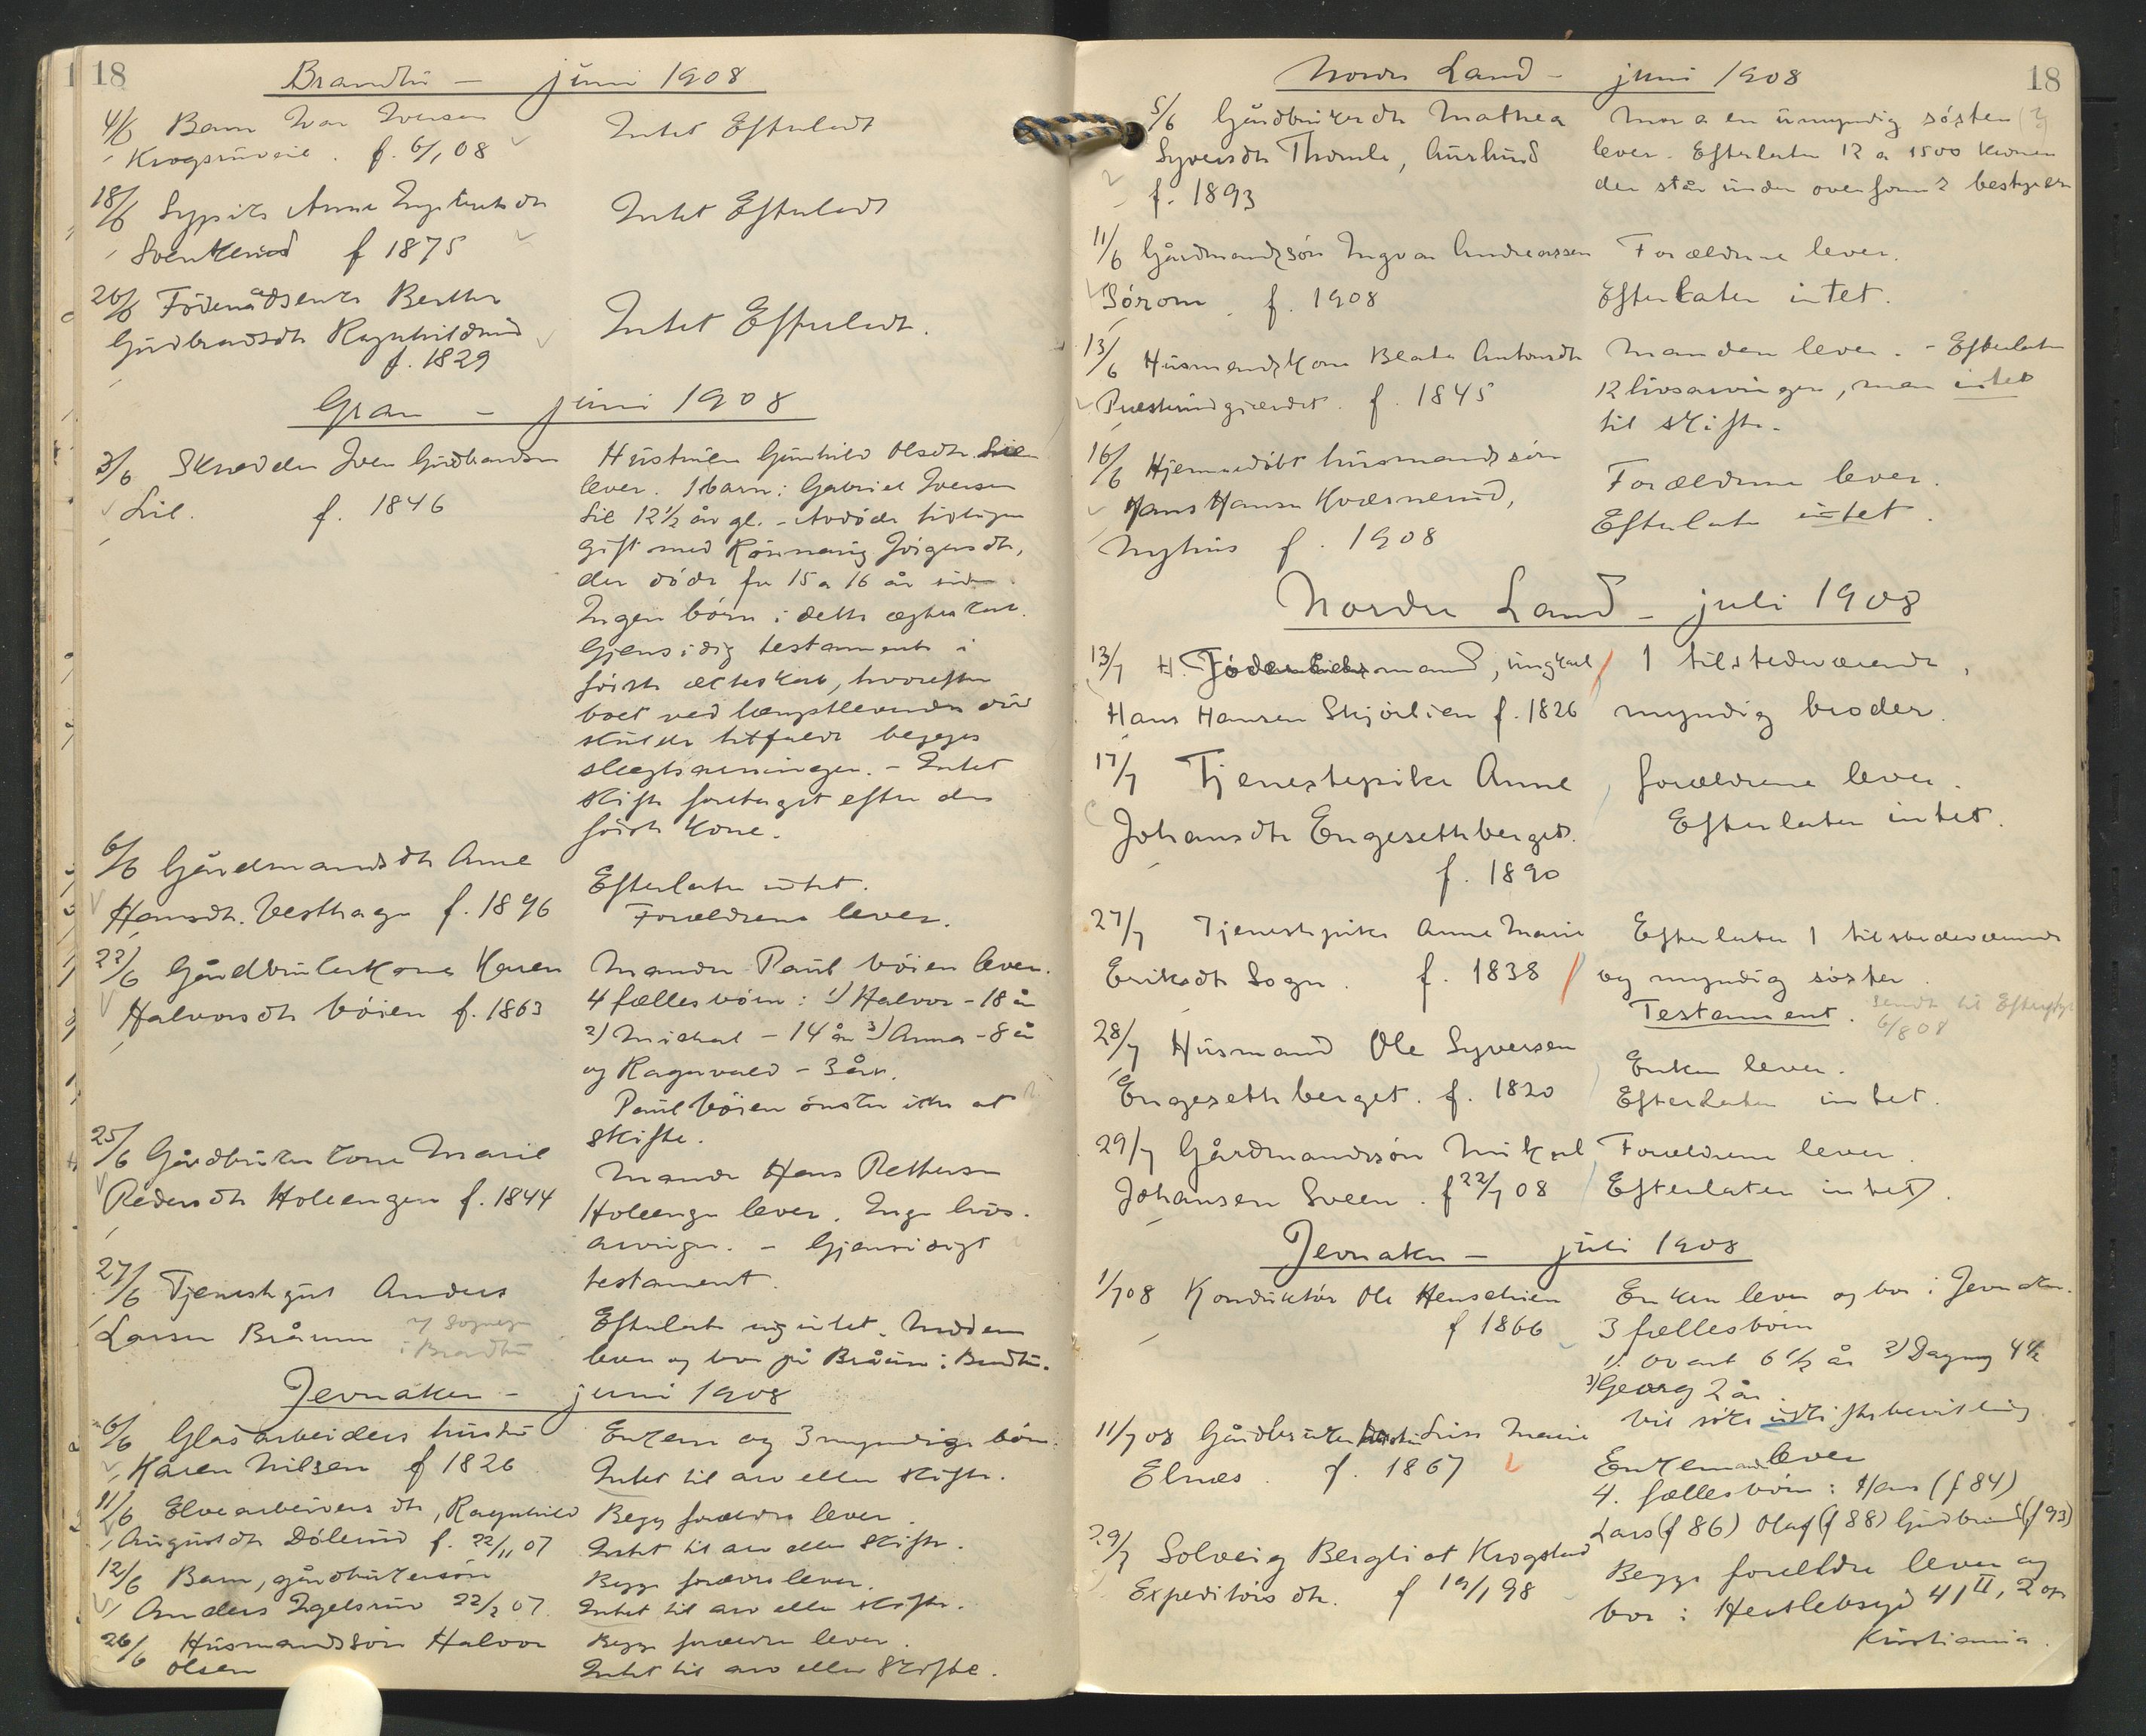 18
Brandbu — juni 1908
4/6 Barn Ivar Iversen
Krogsrudeie. f. 6/1 08
Intet Efterladt
18/6 Sypike Anne Engebretsdtr
Svenkerud f 1875
Intet Efterladt
26/6 Føderådsenke Berthe
Gudbrandsdtr Ragnhildrud
f. 1829
Intet Efterladt.
Gran — juni 1908
3/6 Skrædder Iver Gudbrandsen
Lie. f. 1846
Hustruen Gunhild Olsdtr. Lie
lever. 1 barn: Gabriel Iversen
Lie 12 1/2 år gl. - Avdøde tidligere
gift med Rønnaug Jørgensdtr,
der døde for 15 a 16 år siden
Ingen børn i dette ægteskab.
Gjensidig testamente i
første ekteskab, hvorefter
boet ved længstlevendes død
skulde tilfalde begges
slegtsarvinger. - Intet
skifte foretaget efter den
første kone.
6/6 Gårdmandsdtr Anne
Hansdtr. Vesthagen f. 1896
Efterlater intet.
Forældrene lever.
22/6 Gårdbrukerkone Karen
Halvorsdtr Bøien f. 1863
Manden Paul Bøien lever.
4 fællesbørn: 1) Halvor - 18 år
2) Michael - 14 år 3) Anna - 8 år
og Ragnvald - 3 år.
Paul Bøien ønsker ikke at
skifte.
25/6 Gårdbrukerkone Marie
Pedersdtr Holeengen f. 1844
Mande Hans Pettersen
Holeengen lever. Ingen livs-
arvinger. - Gjensidigt
testament.
27/6 Tjenestegut Anders
Larsen Bråten
i Brandbu
Efterlater sig intet. Moderen
lever og bor på Bråten i Brandbu.
Jevnaker — juni 1908
6/6 Glasarbeiders hustru
Karen Nilsen f 1826
Enkem og 3 myndige børn.
Intet til arv eller skifte.
11/6 Elvearbeiders dtr, Ragnhild
Augustdtr Dølerud f. 22/11 07
Begge forældre lever.
Intet til arv eller skifte.
12/6 Barn, gårdbrukersøn
Anders Egelsrud 22/2 07.
Begge forældre lever.
Intet til arv eller skifte.
26/6 Husmandssøn Halvor
Olsen
Begge forældre lever.
Intet til arv eller skifte.
18
Nordre Land — juni 1908
5/6 Gårdbrukerdtr Mathea
Syversdtr Thomle, Aurlund
f. 1893
Mor a en umyndig søster
lever. Efterlater 12 a 1500 kroner
der står under overform. bestyrelse
11/6 Gårdmandssøn Ingvar Andreassen
Sørom. f. 1908
Forældrene lever.
Efterlater intet.
13/6 Husmandskone Beate Antonsdtr
Præsterudgjærdet. f. 1845
Manden lever. - Efterlater
12 livsarvinger, men intet
til skifte.
16/6 Hjemmedøbt husmandssøn
Hans Hansen Kværnerud,
Nyhus f. 1908
Forældrene lever.
Efterlater intet.
Nordre Land — juli 1908
13/7 H. mand, ungkarl
Hans Hansen Skjørlien f. 1826
1 tilstedeværende,
myndig broder.
17/7 Tjenestepike Anne
Johansdtr Engesethberget.
f. 1890
forældrene lever.
Efterlater intet.
27/7 Tjenestepike Anne Marie
Eriksdtr Sogn. f. 1838
Efterlater 1 tilstedeværende
og myndig søster.
Testament. sendt til
6/8 08
28/7 Husmand Ole Syversen
Engesethberget. f. 1820
Enken lever.
Efterlater intet.
29/7 Gårdmandssøn Mikael
Johansen Sveen. f 22/7 08
Forældrene lever.
Efterlater intet.
Jevnaker — juli 1908
1/7 08 Konduktør Ole Henschien
f 1866
Enken lever og bor i Jevnaker.
3 fællesbørn
1) Øvart 6 1/2 år 2) Dagny 4 1/2
3) Georg 2 år
Vil søke uskiftebevilling
11/7 08 Gårdbruker hustru Lise Marie
Elnæs. f. 1867
Enkemand lever
4. fællesbørn: Hans (f 84)
Lars (f 86) Olaf (f 88) Gudbrand (f 93)
29/7 Solveig Bergliot Krogstad
Expeditørs dtr. f 19/1 98
Begge foreldre lever og
bor i Hertlebsgd 41 II, 2 op
Kristiania.